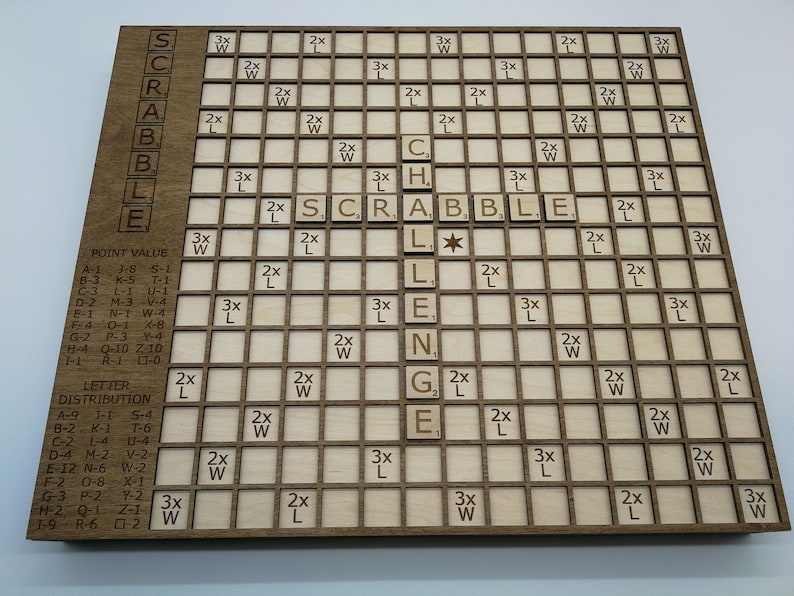 SCRABBLE
POINT VALUE
A-1 J-8 S-1
B-3 K-5 T-1
C-3 L-1 U-1
D-2 M-3 V-4
E-1 N-1 W-4
F-4 O-1 X-8
G-2 P-3 Y-4
H-4 Q-10 Z-10
I-1 R-1 □-0
LETTER
DISTRIBUTION
A-9 J-1 S-4
B-2 K-1 T-6
C-2 L-4 U-4
D-4 M-2 V-2
E-12 N-6 W-2
F-2 O-8 X-1
G-3 P-2 Y-2
H-2 Q-1 Z-1
I-9 R-6 □-2
3x W 2x L 3x W 2x L 3x W
2x W 3x L 3x L 2x W
2x W 2x L 2x L 2x W
2x L 2x W 2x L 2x W 2x L
2x W 2x W
3x L 3x L 3x L 3x L
2x L SCRABBLE 2x L
CHALLENGE
3x W 2x L 2x L 3x W
2x L 2x L 2x L
3x L 3x L 3x L 3x L
2x W 2x W
2x L 2x W 2x L 2x W 2x L
2x W 2x L 2x W
2x W 3x L 3x L 2x W
3x W 2x L 3x W 2x L 3x W